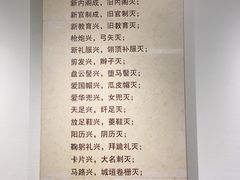 新内阁成，旧内阁灭；
新官制成，旧官制灭；
新教育兴，旧教育灭；
枪炮兴，弓矢灭；
新礼服兴，翎顶补服灭；
剪发兴，辫子灭；
盘云髻兴，堕马髻灭；
爱国帽兴，瓜皮帽灭；
爱华兜兴，女兜灭；
天足兴，纤足灭；
放足鞋兴，菱鞋灭；
阳历兴，阴历灭；
鞠躬礼兴，拜跪礼灭；
卡片兴，大名刺灭；
马路兴，城垣卷栅灭；